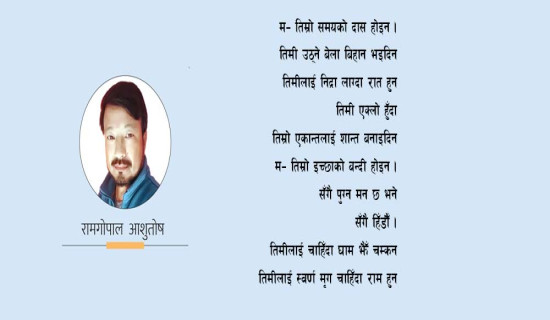 म- तिम्रो समयको दास होइन ।
तिमी उठ्ने बेला बिहान भइदिन
तिमीलाई निद्रा लाग्दा रात हुन
तिमी एक्लो हुँदा
तिम्रो एकान्तलाई शान्त बनाइदिन
म- तिम्रो इच्छाको बन्दी होइन ।
सँगै पुग्न मन छ भने
सँगै हिँडौं ।
तिमीलाई चाहिँदा घाम झैँ चम्कन
तिमीलाई स्वर्ण मृग चाहिँदा राम हुन
रामगोपाल आशुतोष